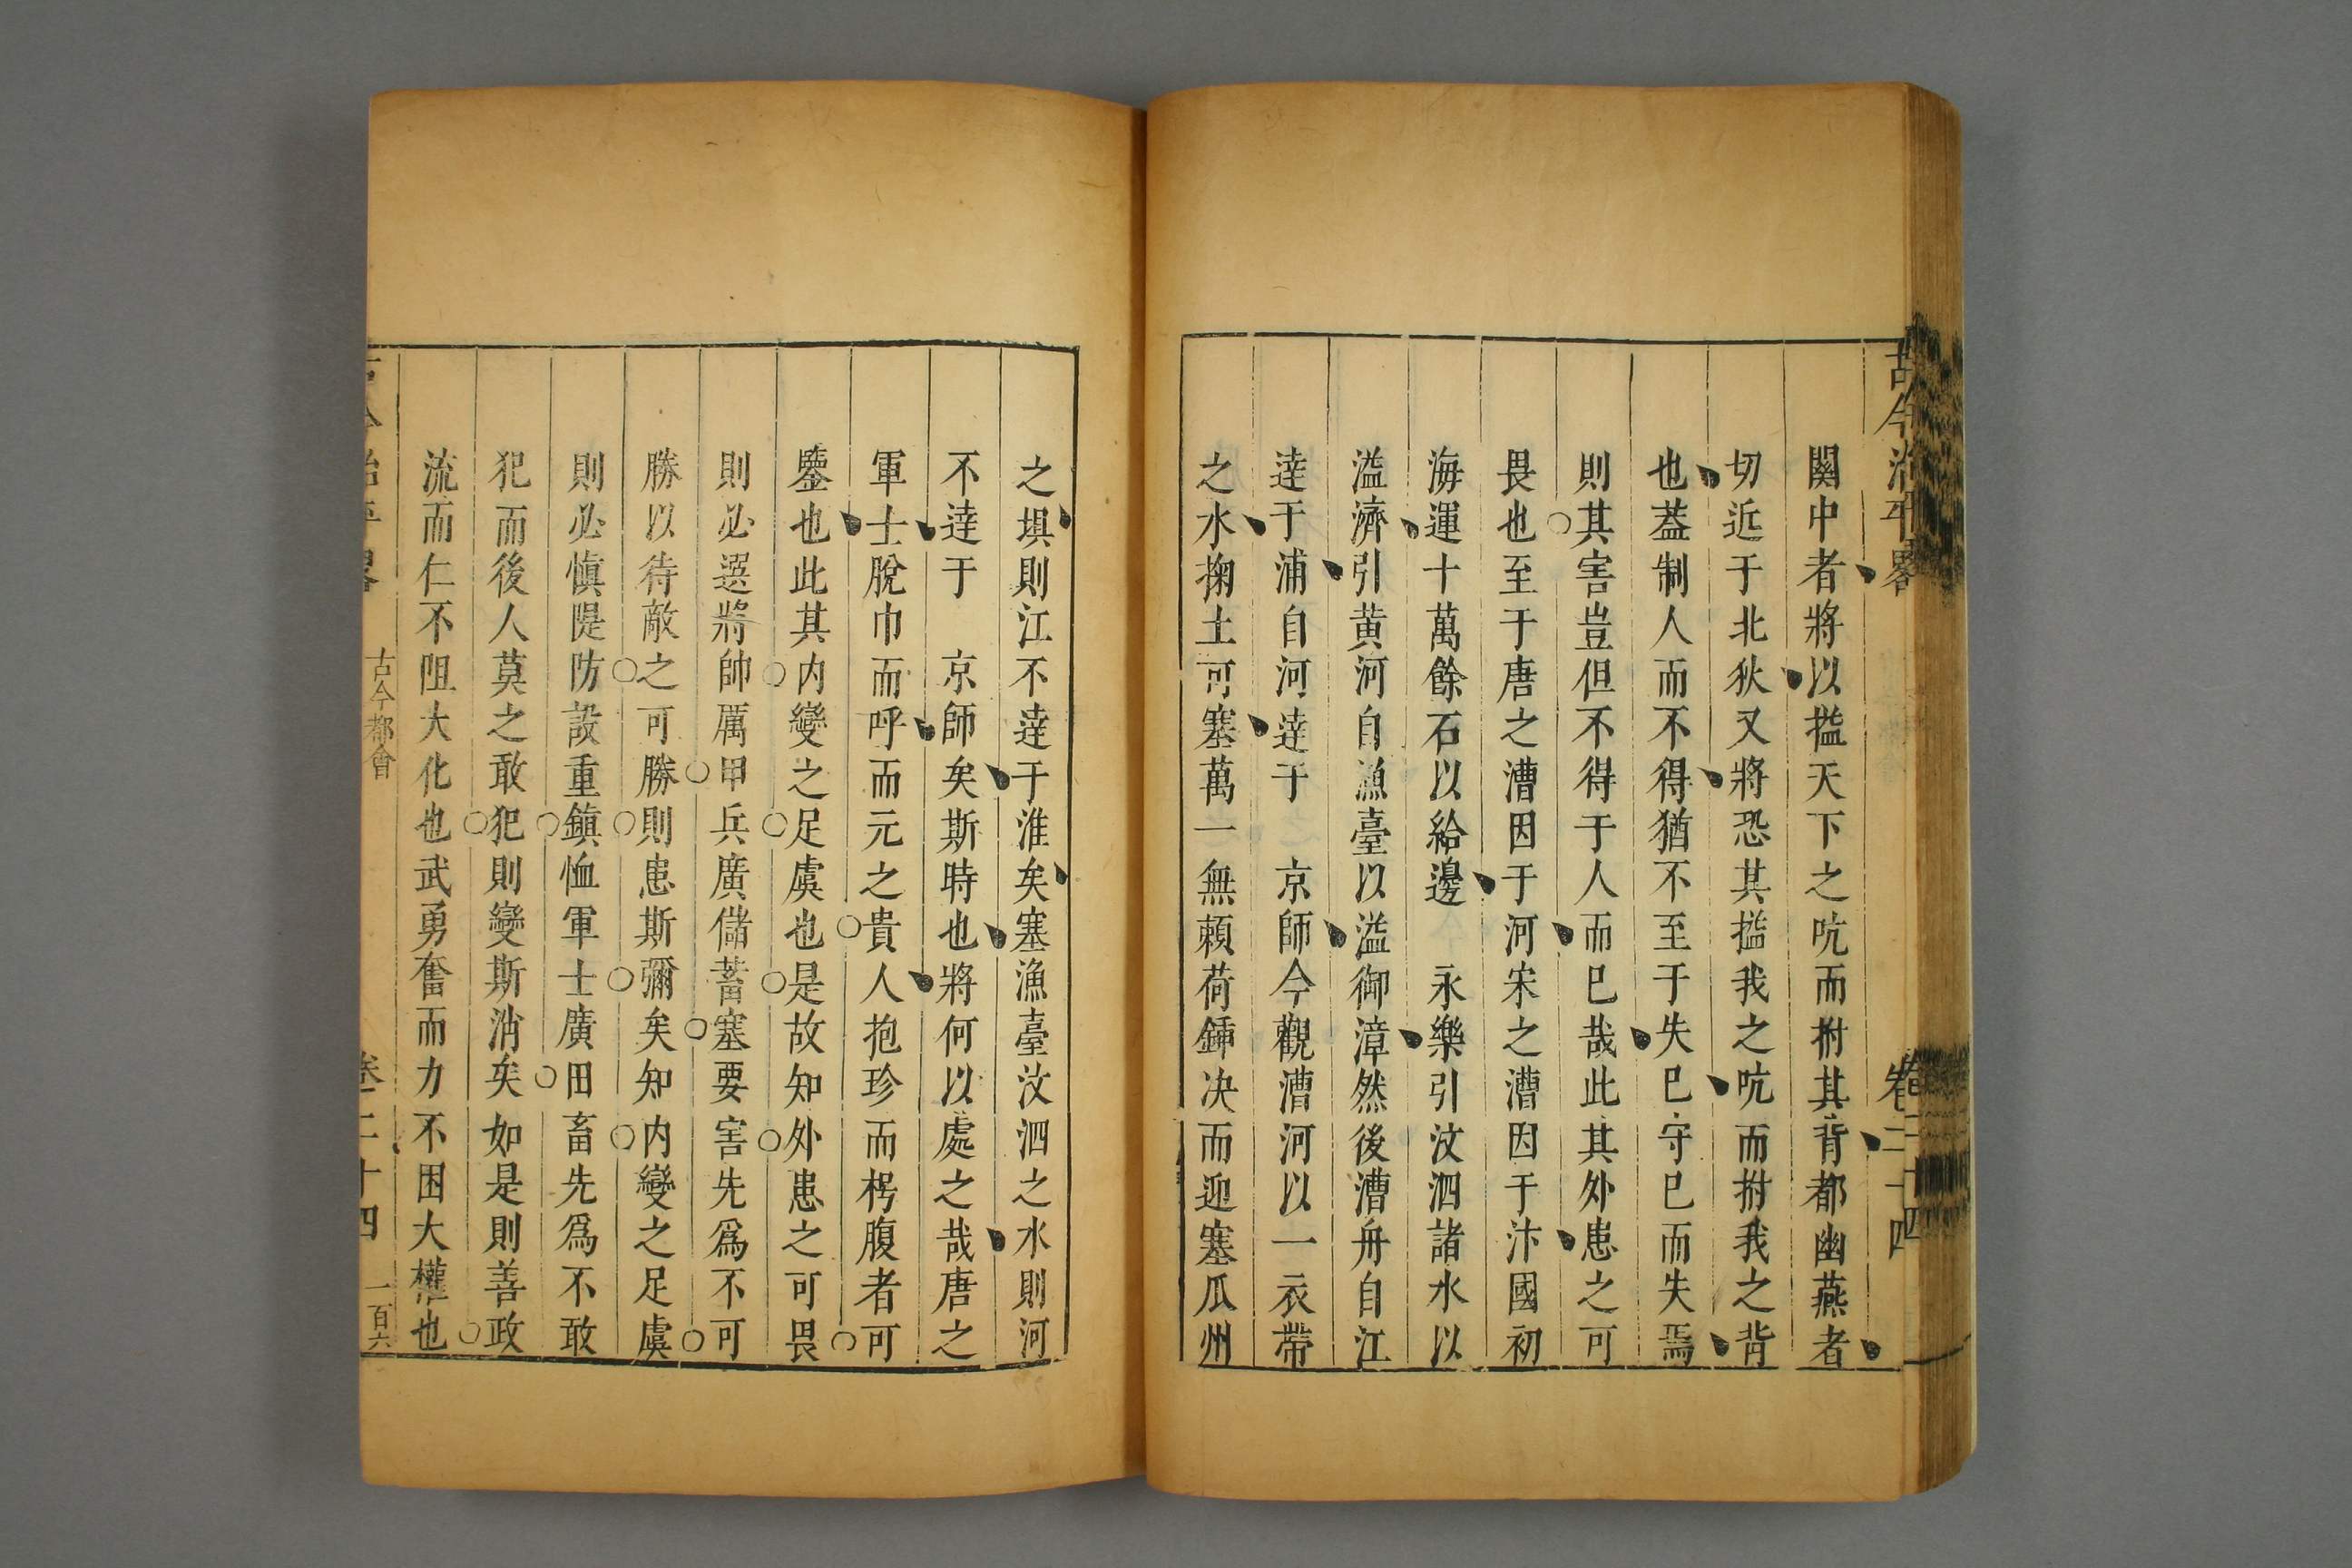 古今治平畧
卷二十四
關中者將以搤天下之吭而拊其背都幽燕者
切近于北狄又將恐其搤我之吭而拊我之背
也葢制人而不得猶不至于失巳守巳而失焉
則其害豈但不得于人而巳哉此其外患之可
畏也至于唐之漕因于河宋之漕因于汴國初
海運十萬餘石以給邊 永樂引汶泗諸水以
溢濟引黄河自漁臺以溢御漳然後漕舟自江
逹于浦自河逹于 京師今觀漕河以一衣帶
之水掬土可塞萬一無頼荷鍤决而迎塞瓜州
之埧則江不逹于淮矣塞漁臺汶泗之水則河
不逹于 京師矣斯時也將何以處之哉唐之
軍士脫巾而呼而元之貴人抱珍而枵腹者可
鑒也此其内變之足虞也是故知外患之可畏
則必選將帥厲甲兵廣儲蓄塞要害先爲不可
勝以待敵之可勝則患斯彌矣知内變之足虞
則必愼隄防設重鎭恤軍士廣田畜先爲不敢
犯而後人莫之敢犯則變斯消矣如是則善政
流而仁不阻大化也武勇奮而力不困大權也
古今治平畧
古今都會
卷二十四
一百六